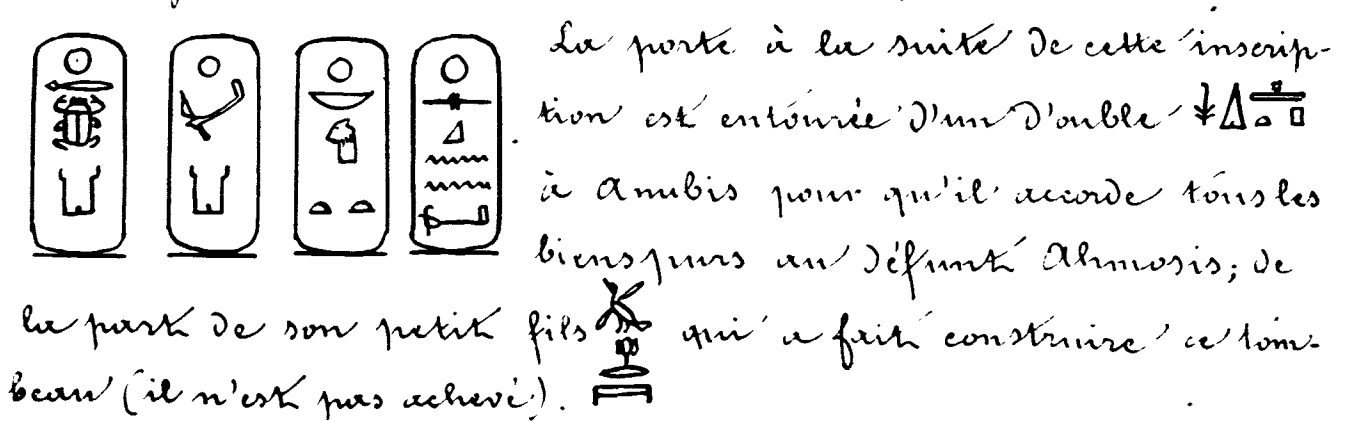 La porte à la suite de cette inscrip-
tion est entourée d'un double
à Anubis pour qu'il accorde tous les
biens purs au défunt Ahmosis; de
la part de son petit fils qui a fait construire ce tom-
beau (il n'est pas achevé).